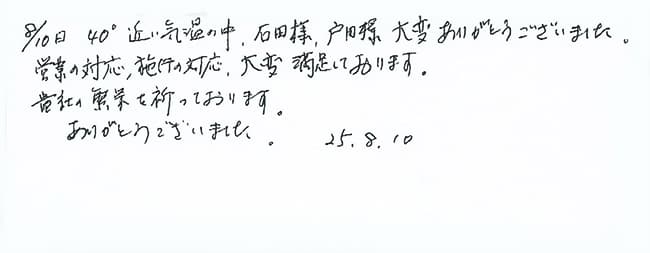 8/10日 40° 近い気温の中、石田様、戸田様 大変ありがとうございました。
営業の対応、施行の対応、大変満足しております。
貴社の繁栄を祈っております。
ありがとうございました。 25.8.10